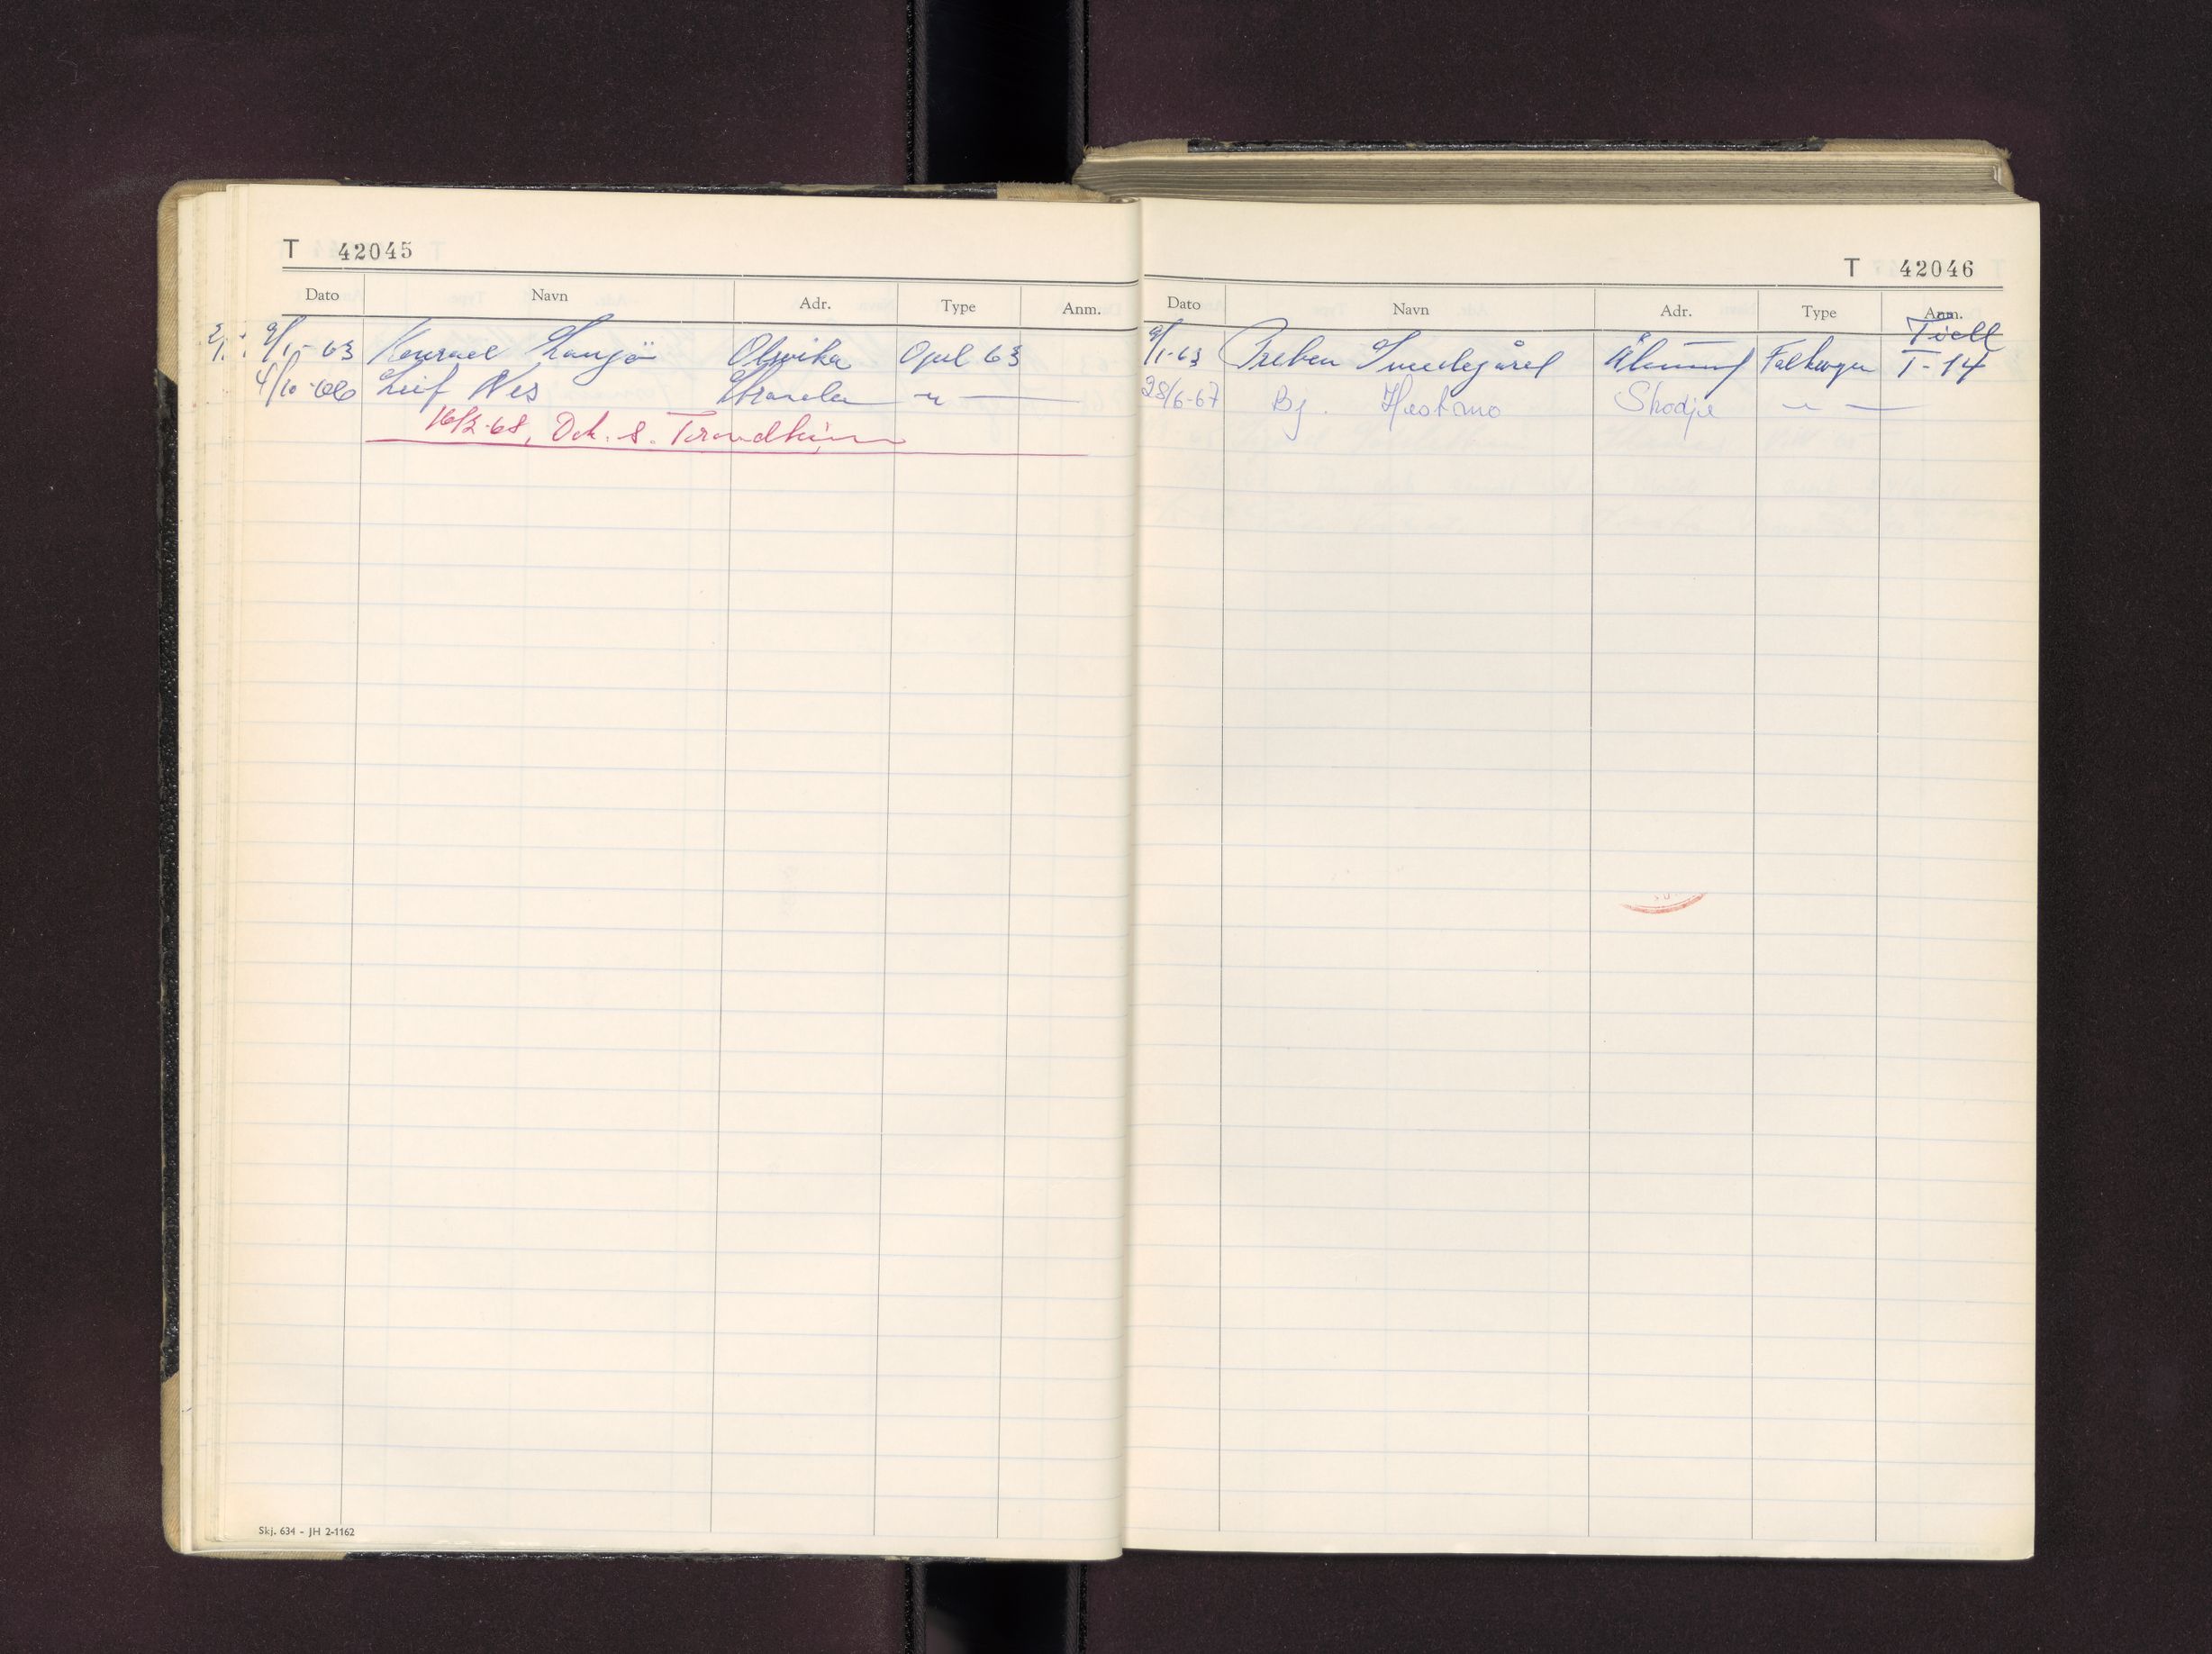 T 42045
Dato Navn Adr. Type Anm.
9/1-63 Konrad Langjö Olsvika Opel 63
4/10-66 Leif Nes Stranda — " —
16/2-68, Dok. s. Trondheim
Skj. 634 - JH 2-1162
T 42046
Dato Navn Adr. Type Anm.
9/1-63 Preben Smedegård Ålesund Folkevogn T-14
28/6-67 Bj. Skodje — " —